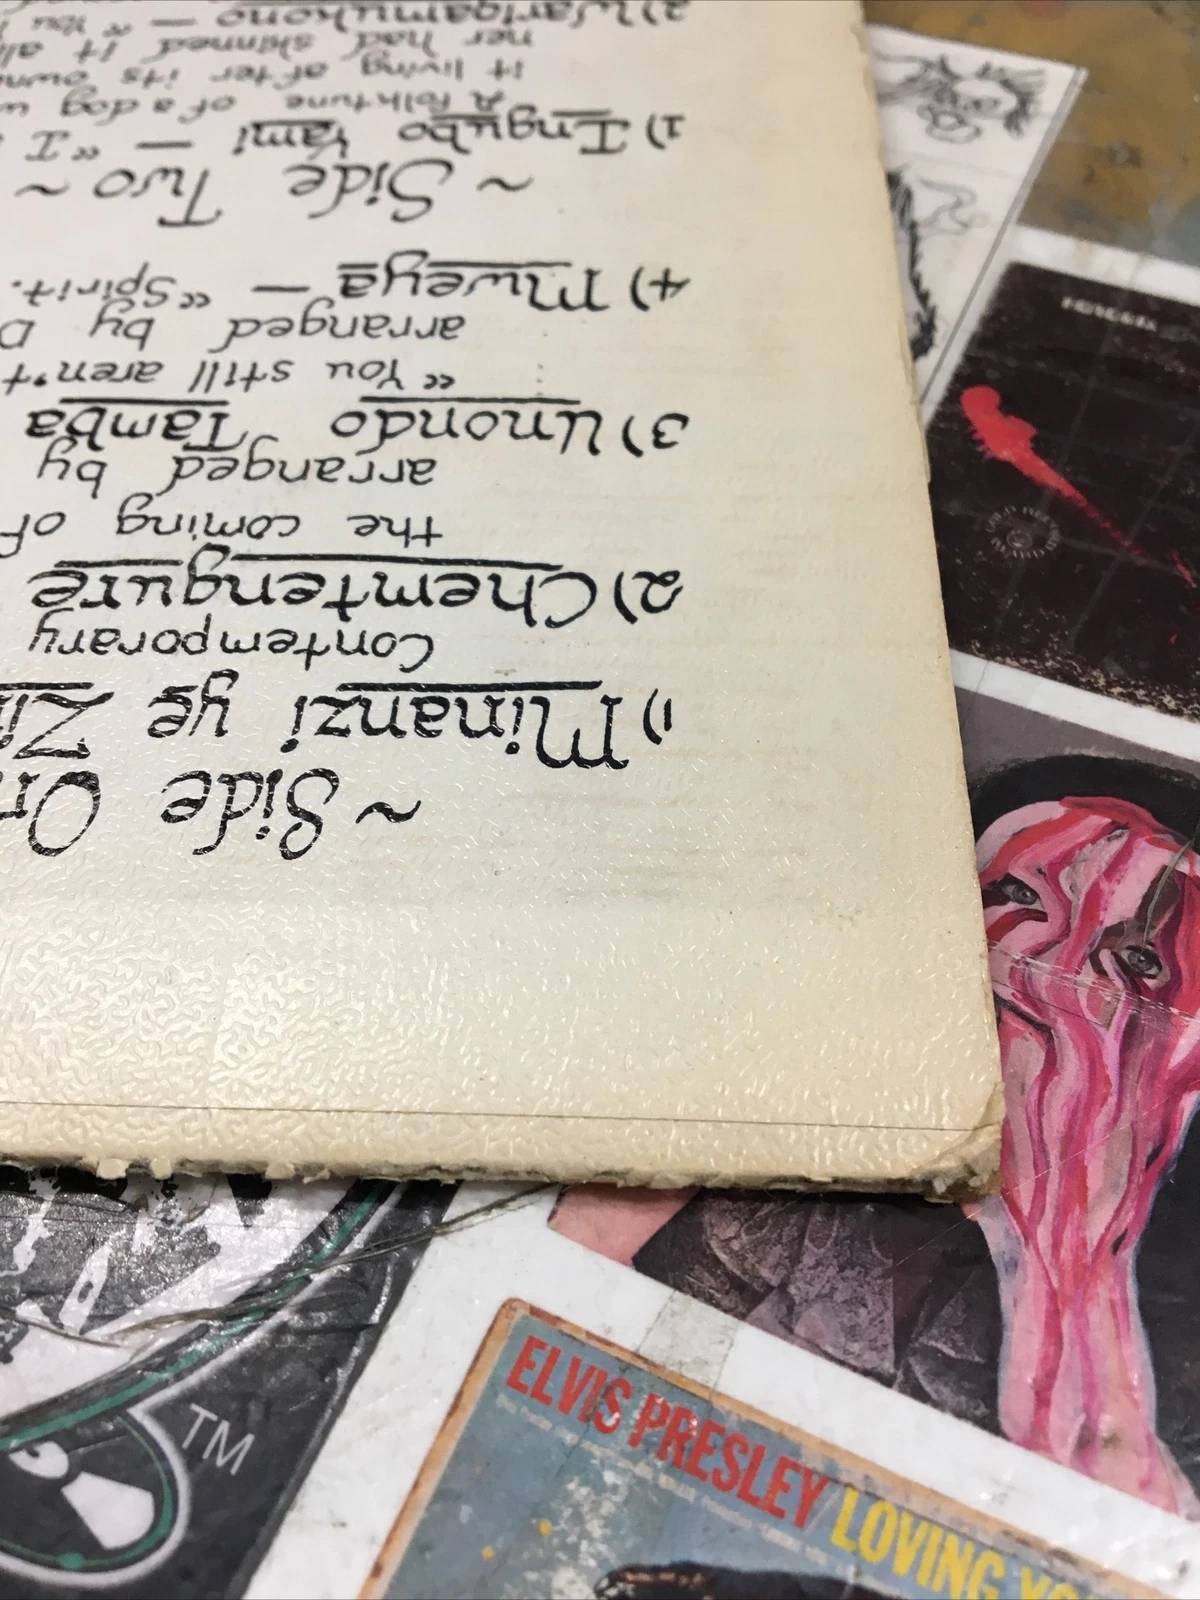 ~ Side On
1) Minanzi ye Zi
Contemporary
2) Chemtengure
the coming of
arranged by
3) Unondo Tamba
“You still aren't
arranged by D
4) Mweya — “Spirit.
~ Side Two ~
1) Ingubo Yami — “I
A folktune of a dog w
it living after its own
ner had skinned it ali
2) Warigamukono — “You
HENDRIX
TM
ELVIS PRESLEY/LOVING YO